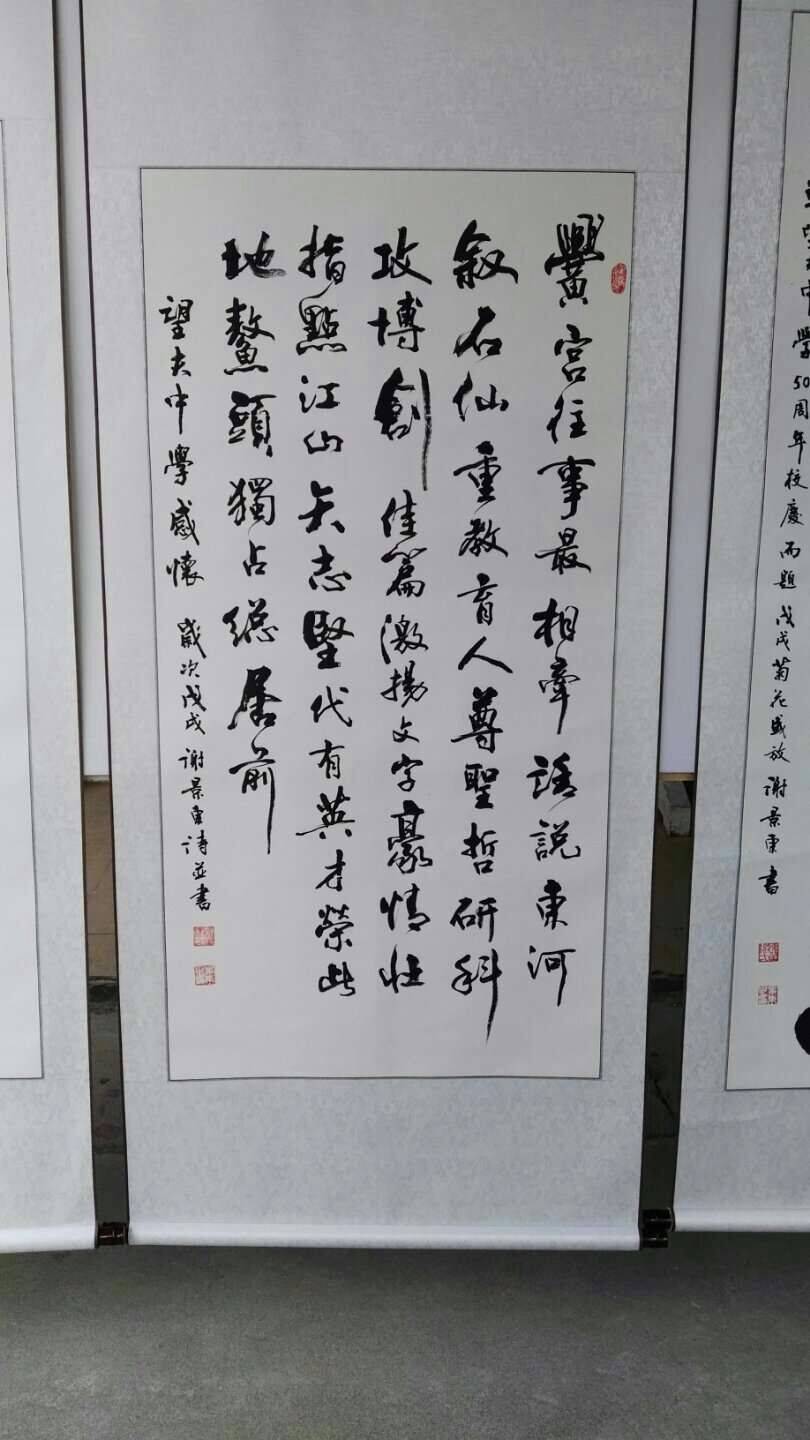 黌宮往事最相牽話說東河
叙石仙重教育人尊聖哲研科
攻博創佳篇激揚文字豪情壯
指點江山矢志堅代有英才榮此
地鰲頭獨占總居前
望夫中學感懷 歲次戊戌 謝景東詩並書
中學50周年校慶而題 戊戌菊花盛放 謝景東書